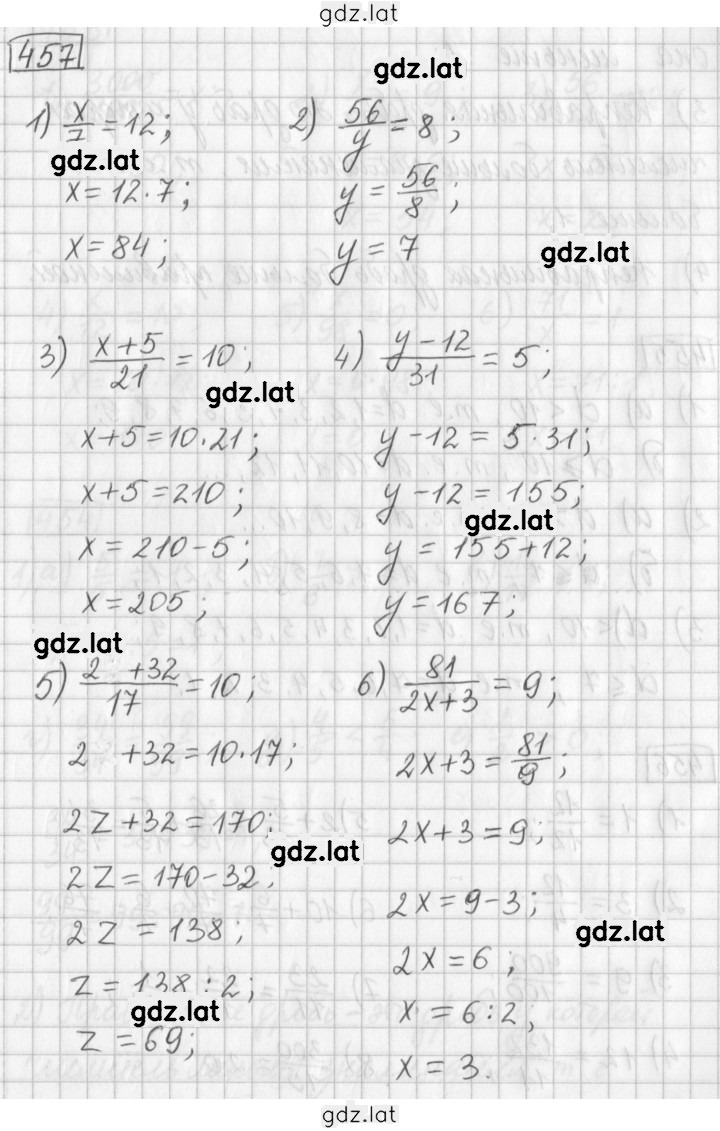 gdz.lat
457
gdz.lat
1) x/7 = 12; 2) 56/y = 8;
gdz.lat
x = 12·7; y = 56/8;
x = 84; y = 7
gdz.lat
3) (x+5)/21 = 10; 4) (y-12)/31 = 5;
gdz.lat
x+5 = 10·21; y-12 = 5·31;
x+5 = 210; y-12 = 155;
gdz.lat
x = 210-5; y = 155+12;
x = 205; y = 167;
gdz.lat
5) (2 +32)/17 = 10; 6) 81/(2x+3) = 9;
2 +32 = 10·17; 2x+3 = 81/9;
2z+32 = 170; 2x+3 = 9;
gdz.lat
2z = 170-32; 2x = 9-3;
gdz.lat
2z = 138; 2x = 6;
z = 138:2; x = 6:2;
gdz.lat
z = 69; x = 3.
gdz.lat